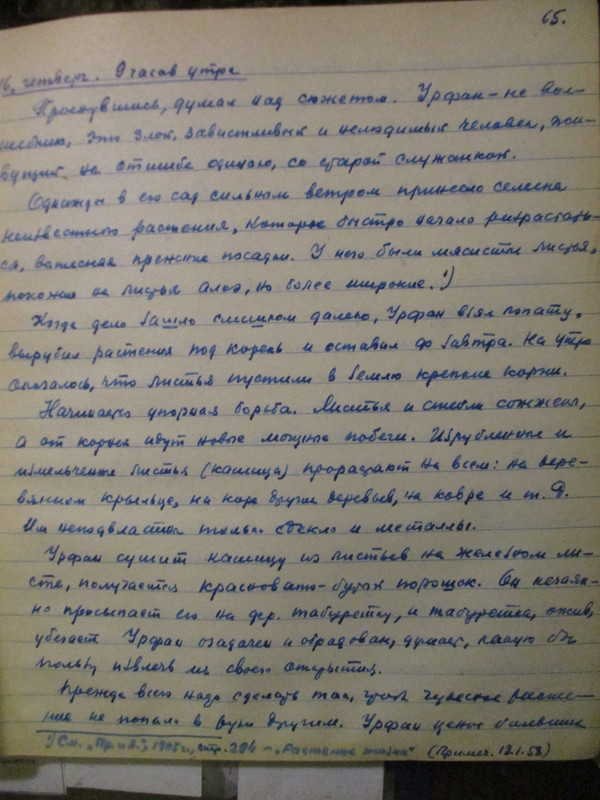 65.
16, четверг. 9 часов утра
Проснувшись, думал над сюжетом. Урфан – не вол-
шебник, это злой, завистливый и нелюдимый человек, жи-
вущий на отшибе одиноко, со старой служанкой.
Однажды в его сад сильным ветром принесло семена
неизвестного растения, которое быстро начало разрастать-
ся, вытесняя прежние посадки. У него были мясистые листья,
похожие на листья алоэ, но более широкие.¹)
Когда дело зашло слишком далеко, Урфан взял лопату,
вырубил растения под корень и оставил до завтра. На утро
оказалось, что листья пустили в землю крепкие корни.
Начинается упорная борьба. Листья и стебли сожжены,
а от корней идут новые мощные побеги. Изрубленные и
измельченные листья (кашица) прорастают на всем: на дере-
вянном крыльце, на коре других деревьев, на ковре и т.д.
Им неподвластны только стекло и металлы.
Урфан сушит кашицу из листьев на железном ли-
сте, получается красновато-бурый порошок. Он нечаян-
но просыпает его на дер. табуретку, и табуретка, ожив,
убегает. Урфан озадачен и обрадован, думает, какую бы
пользу извлечь из своего открытия.
Прежде всего надо сделать так, чтоб чудесное расте-
ние не попало в руки другим. Урфан ценой больших
¹) См. „Пр. и л.", 1905 г., стр. 284 – „Растение жизни" (Примеч. 12.1.58)